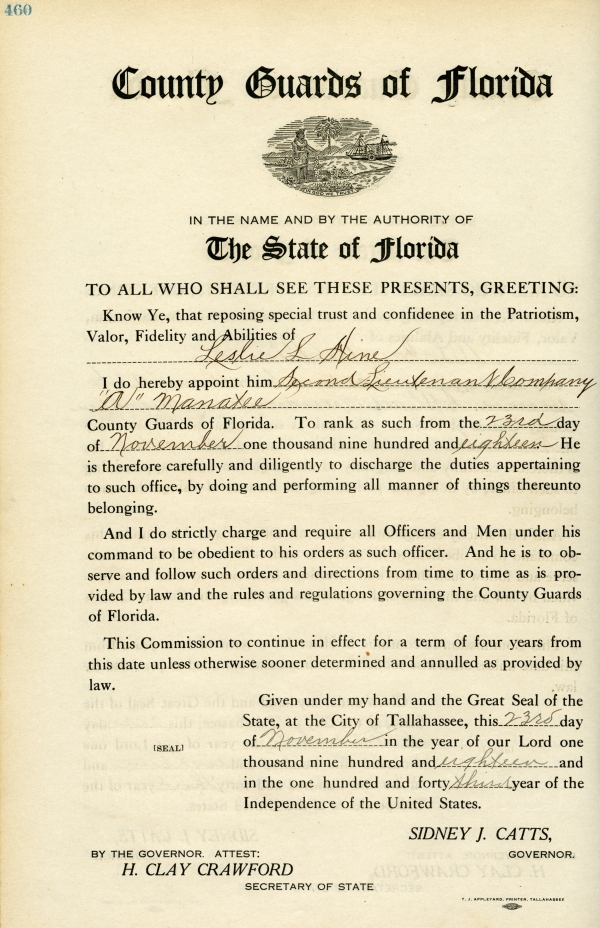 460
County Guards of Florida
IN THE NAME AND BY THE AUTHORITY OF
The State of Florida
TO ALL WHO SHALL SEE THESE PRESENTS, GREETING:
Know Ye, that reposing special trust and confidenee in the Patriotism,
Valor, Fidelity and Abilities of
Leslie L Hine
I do hereby appoint him Second Lieutenant Company
"A" Manatee
County Guards of Florida. To rank as such from the 23rd day
of November one thousand nine hundred and eighteen He
is therefore carefully and diligently to discharge the duties appertaining
to such office, by doing and performing all manner of things thereunto
belonging.
And I do strictly charge and require all Officers and Men under his
command to be obedient to his orders as such officer. And he is to ob-
serve and follow such orders and directions from time to time as is pro-
vided by law and the rules and regulations governing the County Guards
of Florida.
This Commission to continue in effect for a term of four years from
this date unless otherwise sooner determined and annulled as provided by
law.
Given under my hand and the Great Seal of the
State, at the City of Tallahassee, this 23rd day
of November in the year of our Lord one
[SEAL]
thousand nine hundred and eighteen and
in the one hundred and forty third year of the
Independence of the United States.
SIDNEY J. CATTS,
BY THE GOVERNOR. ATTEST: GOVERNOR.
H. CLAY CRAWFORD
SECRETARY OF STATE
T. J. APPLEYARD, PRINTER, TALLAHASSEE